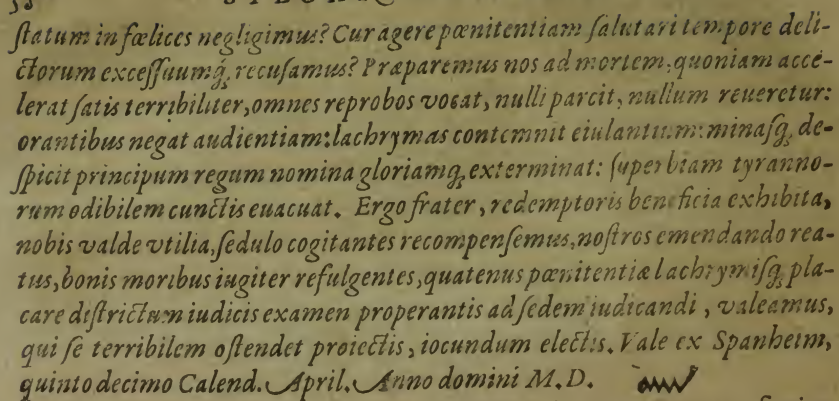 ſtatum in fœlices negligimus? Cur agere pœnitentiam ſalutari tempore deli-
ctorum exceſſuumq́; recuſamus? Præparemus nos ad mortem, quoniam acce-
lerat ſatis terribiliter, omnes reprobos vocat, nulli parcit, nullum reueretur:
orantibus negat audientiam: lachrymas contemnit eiulantium: minaſq́; de-
ſpicit principum regum nomina gloriamq́; exterminat: ſuperbiam tyranno-
rum odibilem cunctis euacuat. Ergo frater, redemptoris beneficia exhibita,
nobis valde vtilia, ſedulo cogitantes recompenſemus, noſtros emendando rea-
tus, bonis moribus iugiter refulgentes, quatenus pœnitentiæ lachrymiſq́; pla-
care diſtrictum iudicis examen properantis ad ſedem iudicandi, valeamus,
qui ſe terribilem oſtendet proiectis, iocundum electis. Vale ex Spanheim,
quinto decimo Calend. April. Anno domini M. D.